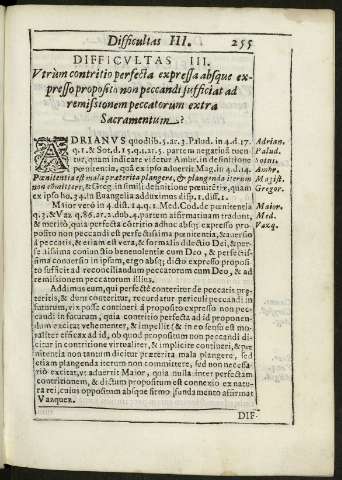 Difficultas III. 255
DIFFICVLTAS III.
Vtrùm contritio perfecta expressa absque ex-
presso proposito non peccandi sufficiat ad
remissionem peccatorum extra
Sacramentum?
ADRIANVS quodlib. 5. ar. 3. Palud. in 4. d. 17. Adrian.
q. 1. & Sot. d. 15. q. 1. ar. 5. partem negatiuã tuen Palud.
tur, quam indicare videtur Ambr. in definitione Sotus.
pœnitentiæ, quã ex ipso aduertit Mag. in 4. d. 14. Ambr.
Pœnitentia est mala præterita plangere, & plangenda iterum Magist.
non committere, & Greg. in simili definitione pœnitẽtiæ, quam Gregor.
ex ipso ho. 34. in Euangelia adduximus disp. 1. diff. 1.
Maior verò in 4. dist. 14. q. 1. Med. Cod. de pœnitentia Maior.
q. 3. & Vaz. q. 86. ar. 2. dub. 4. partem affirmatiuam tradunt, Med.
& meritò, quia perfecta cõtritio adhuc absq; expresso pro- Vazq.
posito non peccandi est perfectissima pœnitentia, & auersio
á peccatis, & etiam est vera, & formalis dilectio Dei, & per-
fectissima coniunctio beneuolentiæ cum Deo, & perfectis-
sima conuersio in ipsum, ergo absq; dicto expresso proposi
to sufficit ad reconciliandum peccatorem cum Deo, & ad
remissionem peccatorum illius.
Addimus eum, qui perfectè conteritur de peccatis præ-
teritis, & dum conteritur, recordatur periculi peccandi in
futurum, vix posse contineri á proposito expresso non pec-
candi in futurum, quia contritio perfecta ad id proponen-
dum excitat vehementer, & impellit (& in eo sensu est mo-
raliter efficax ad id, ob quod propositum non peccandi di-
citur in contritione virtualiter, & implicitè contineri, & pœ
nitentia non tantum dicitur præterita mala plangere, sed
etiam plangenda iterum non committere, sed non necessa-
riò excitat, vt aduertit Maior, quia nulla inter perfectam
contritionem, & dictum propositum est connexio ex natu-
ra rei, cuius oppositum absque firmo fundamento affirmat
Vazquez.
DIF-